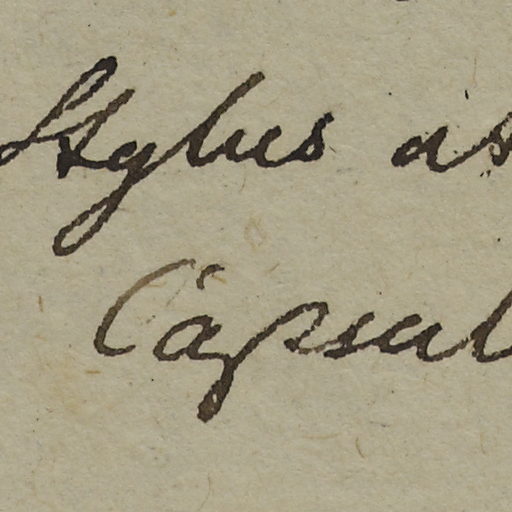 Stylus as
Capsul